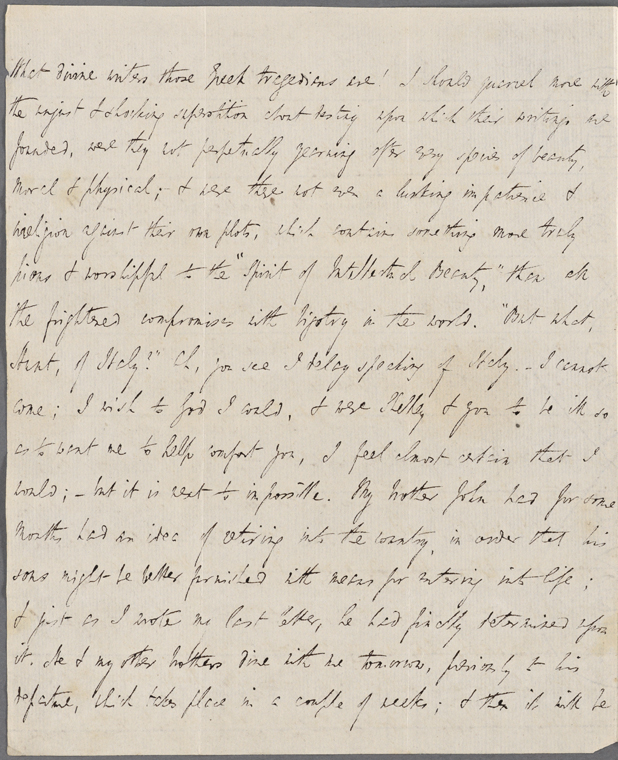 What divine writers those Greek tragedians are! I should quarrel more with
the unjust & shocking superstition about destiny upon which their writings are
founded, were they not perpetually yearning after every species of beauty,
moral & physical; & were there not even a lurking impatience &
irreligion against their own plots, which contains something more truly
pious & worshipful to the "Spirit of Intellectual Beauty," than all
the frightened compromises with bigotry in the world. "But what,
Hunt, of Italy?" Oh, you see I delay speaking of Italy. – I cannot
come; I wish to God I could, & were Shelley & you to be ill so
as to want me to help comfort you, I feel almost certain that I
would; – but it is next to impossible. My brother John had for some
months had an idea of retiring into the country, in order that his
sons might be better furnished with means for entering into life;
& just as I wrote my last letter, he had finally determined upon
it. He & my other brothers dine with me tomorrow, previously to his
departure, which takes place in a couple of weeks; & then it will be